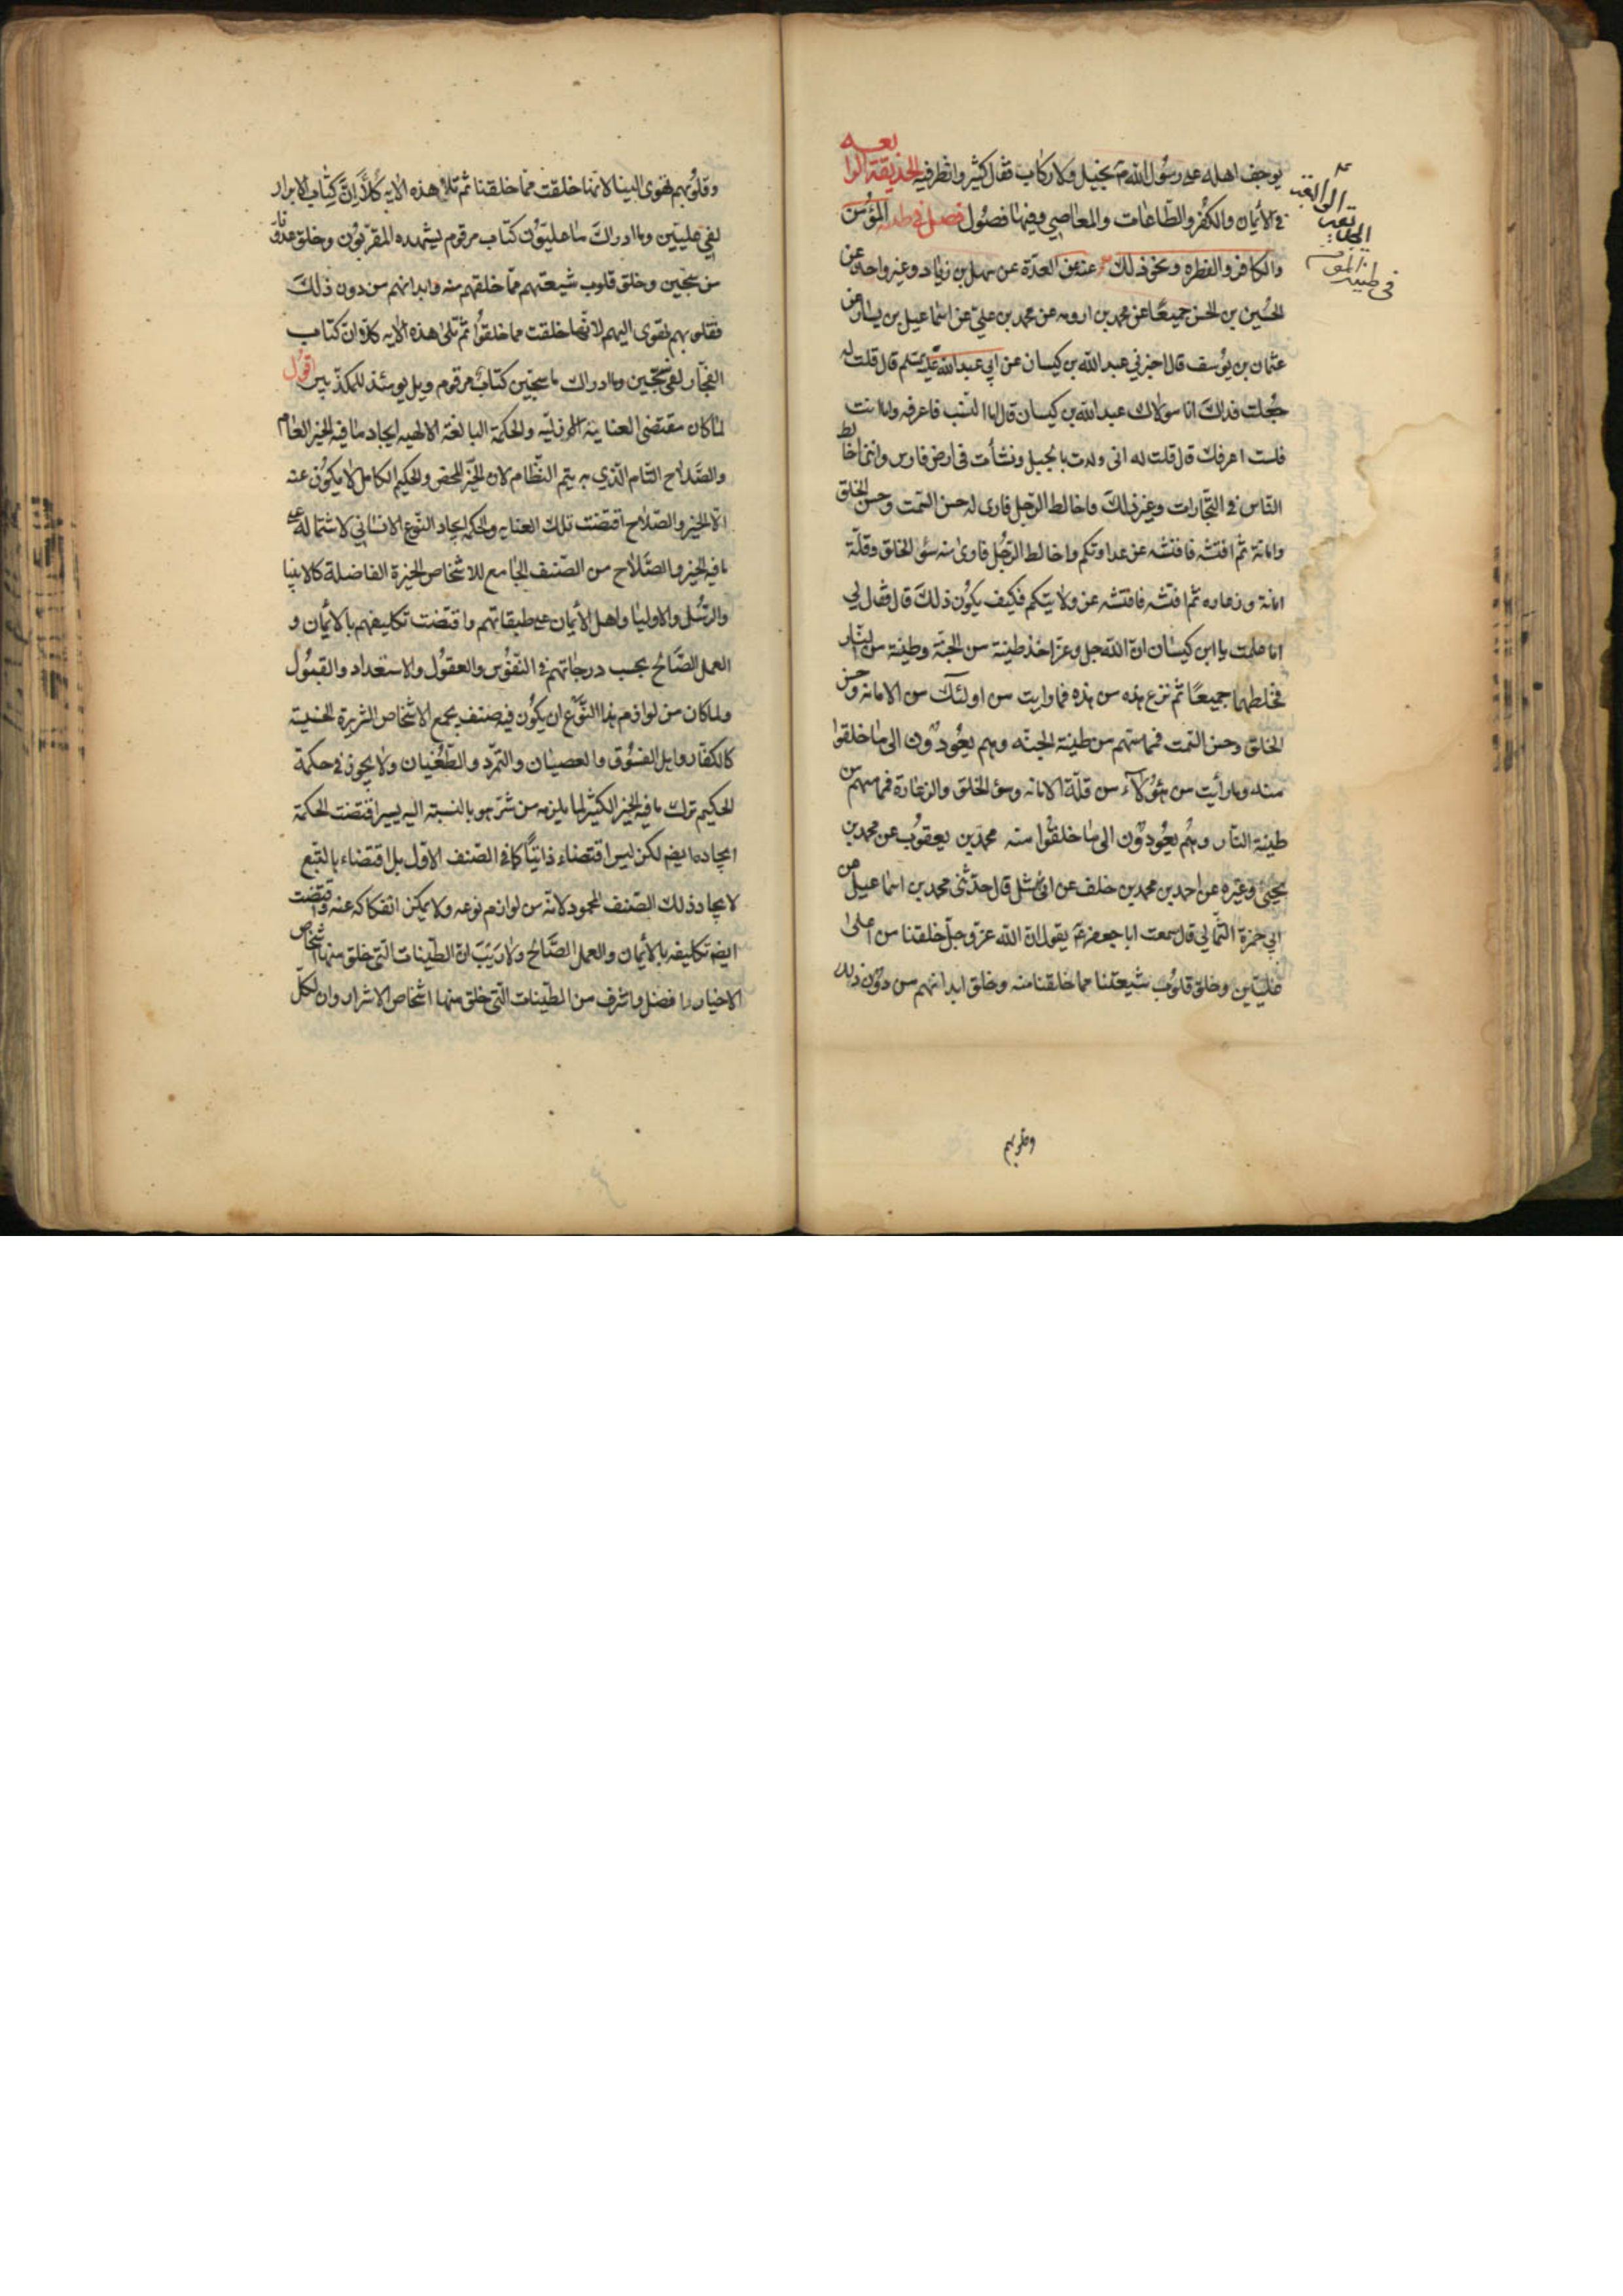 يوجف اهله على رسول الله ص بخيل ولا ركاب فقال كثير وانظر فيه الحديقة الرابعه
في الايمان والكفر والطاعات والمعاصي وفيها فصول فصل في طينة المؤمن
والكافر والفطره ونحو ذلك عنه عن العدة عن سهل بن زياد وغير واحد عن
الحسين بن الحسن جميعًا عن محمد بن اورمه عن محمد بن علي عن اسماعيل بن يسار عن
عثمان بن يوسف قال اخبرني عبد الله بن كيسان عن ابي عبد الله عليه السلم قال قلت له
جعلت فداك انا مولاك عبد الله بن كيسان قال اما النسب فاعرفه واما انت
فلست اعرفك قال قلت له اني ولدت بالجبل ونشأت في ارض فارس وانني اخالط
الناس في التجارات وغير ذلك فاخالط الرجل فارى له حسن السمت وحسن الخلق
وامانة ثم افتشه فافتشه عن عداوتكم واخالط الرجل فارى منه سوء الخلق وقلة
امانة وزعاره ثم افتشه فافتشه عن ولايتكم فكيف يكون ذلك قال فقال لي
اما علمت يا ابن كيسان ان الله جل وعز اخذ طينة من الجنة وطينة من النار
فخلطهما جميعًا ثم نزع هذه من هذه فما رايت من اولئك من الامانه وحسن
الخلق وحسن السمت فمما مستهم من طينة الجنه وهم يعودون الى ما خلقوا
منه وما رأيت من هؤلاء من قلة الامانه وسوء الخلق والزعارة فمما مستهم من
طينة النار وهم يعودون الى ما خلقوا منه محمد بن يعقوب عن محمد بن
يحيى وغيره عن احمد بن محمد بن خلف عن ابي نهشل قال حدثني محمد بن اسماعيل عن
ابي حمزة الثمالي قال سمعت ابا جعفر ع يقول ان الله عز وجل خلقنا من اعلى
عليين وخلق قلوب شيعتنا مما خلقنا منه وخلق ابدانهم من دون ذلك
وقلوبهم
في طينة المؤمن
وقلوبهم تهوى الينا لانها خلقت مما خلقنا ثم تلا هذه الايه كلا ان كتاب الابرار
لفي عليين وما ادراك ما عليون كتاب مرقوم يشهده المقربون وخلق عدونا
من سجين وخلق قلوب شيعتهم مما خلقهم منه وابدانهم من دون ذلك
فقلوبهم تهوى اليهم لانها خلقت مما خلقوا ثم تلى هذه الايه كلا ان كتاب
الفجار لفي سجين وما ادراك ما سجين كتاب مرقوم ويل يومئذ للمكذبين اقول
لما كان مقتضى العناية الازلية والحكمة البالغة الالهيه ايجاد ما فيه الخير العام
والصلاح التام الذي به يتم النظام لان الخير المحض والحكيم الكامل لا يكون عنه
الا الخير والصلاح اقتضت تلك العنايه والحكمه ايجاد النوع الانساني لاشتماله على
ما فيه الخير والصلاح من الصنف الجامع للاشخاص الخيرة الفاضلة كالانبيا
والرسل والاوليا واهل الايمان على طبقاتهم واقتضت تكليفهم بالايمان و
العمل الصالح بحسب درجاتهم في النفوس والعقول والاستعداد والقبول
ولما كان من لوازم هذا النوع ان يكون فيه صنف يجمع الاشخاص الشريرة الخبيثة
كالكفار واهل الفسوق والعصيان والتمرد والطغيان ولا يجوز في حكمة
الحكيم ترك ما فيه الخير الكثير لما يلزمه من شر هو بالنسبة اليه يسير اقتضت الحكمة
ايجاده ايضا لكن ليس اقتضاء ذاتيًا كما في الصنف الاول بل اقتضاء بالتبع
لايجاد ذلك الصنف المحمود لانه من لوازم نوعه ولا يمكن انفكاكه عنه واقتضت
ايضا تكليفه بالايمان والعمل الصالح ولا ريب ان الطينات التي خلق منها اشخاص
الاخيار افضل واشرف من الطينات التي خلق منها اشخاص الاشرار وان لكل